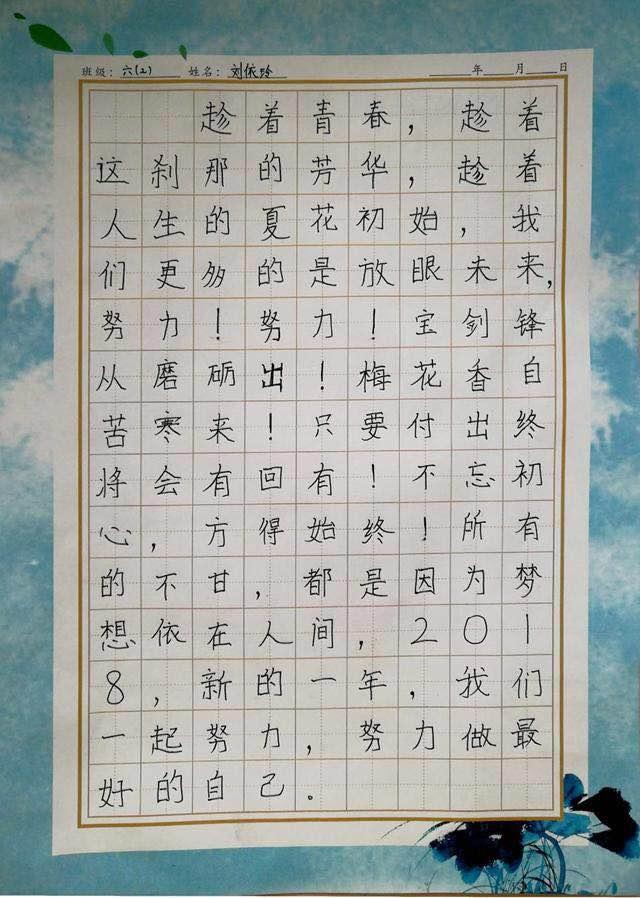 班级：六(2) 姓名：刘依玲 年 月 日
趁着青春，趁着
这刹那的芳华，趁着
人生的夏花初始，我
们更多的是放眼未来，
努力！努力！宝剑锋
从磨砺出！梅花香自
苦寒来！只要付出终
将会有回有！不忘初
心，方得始终！所有
的不甘，都是因为梦
想依在人间，201
8，新的一年，我们
一起努力，努力做最
好的自己。